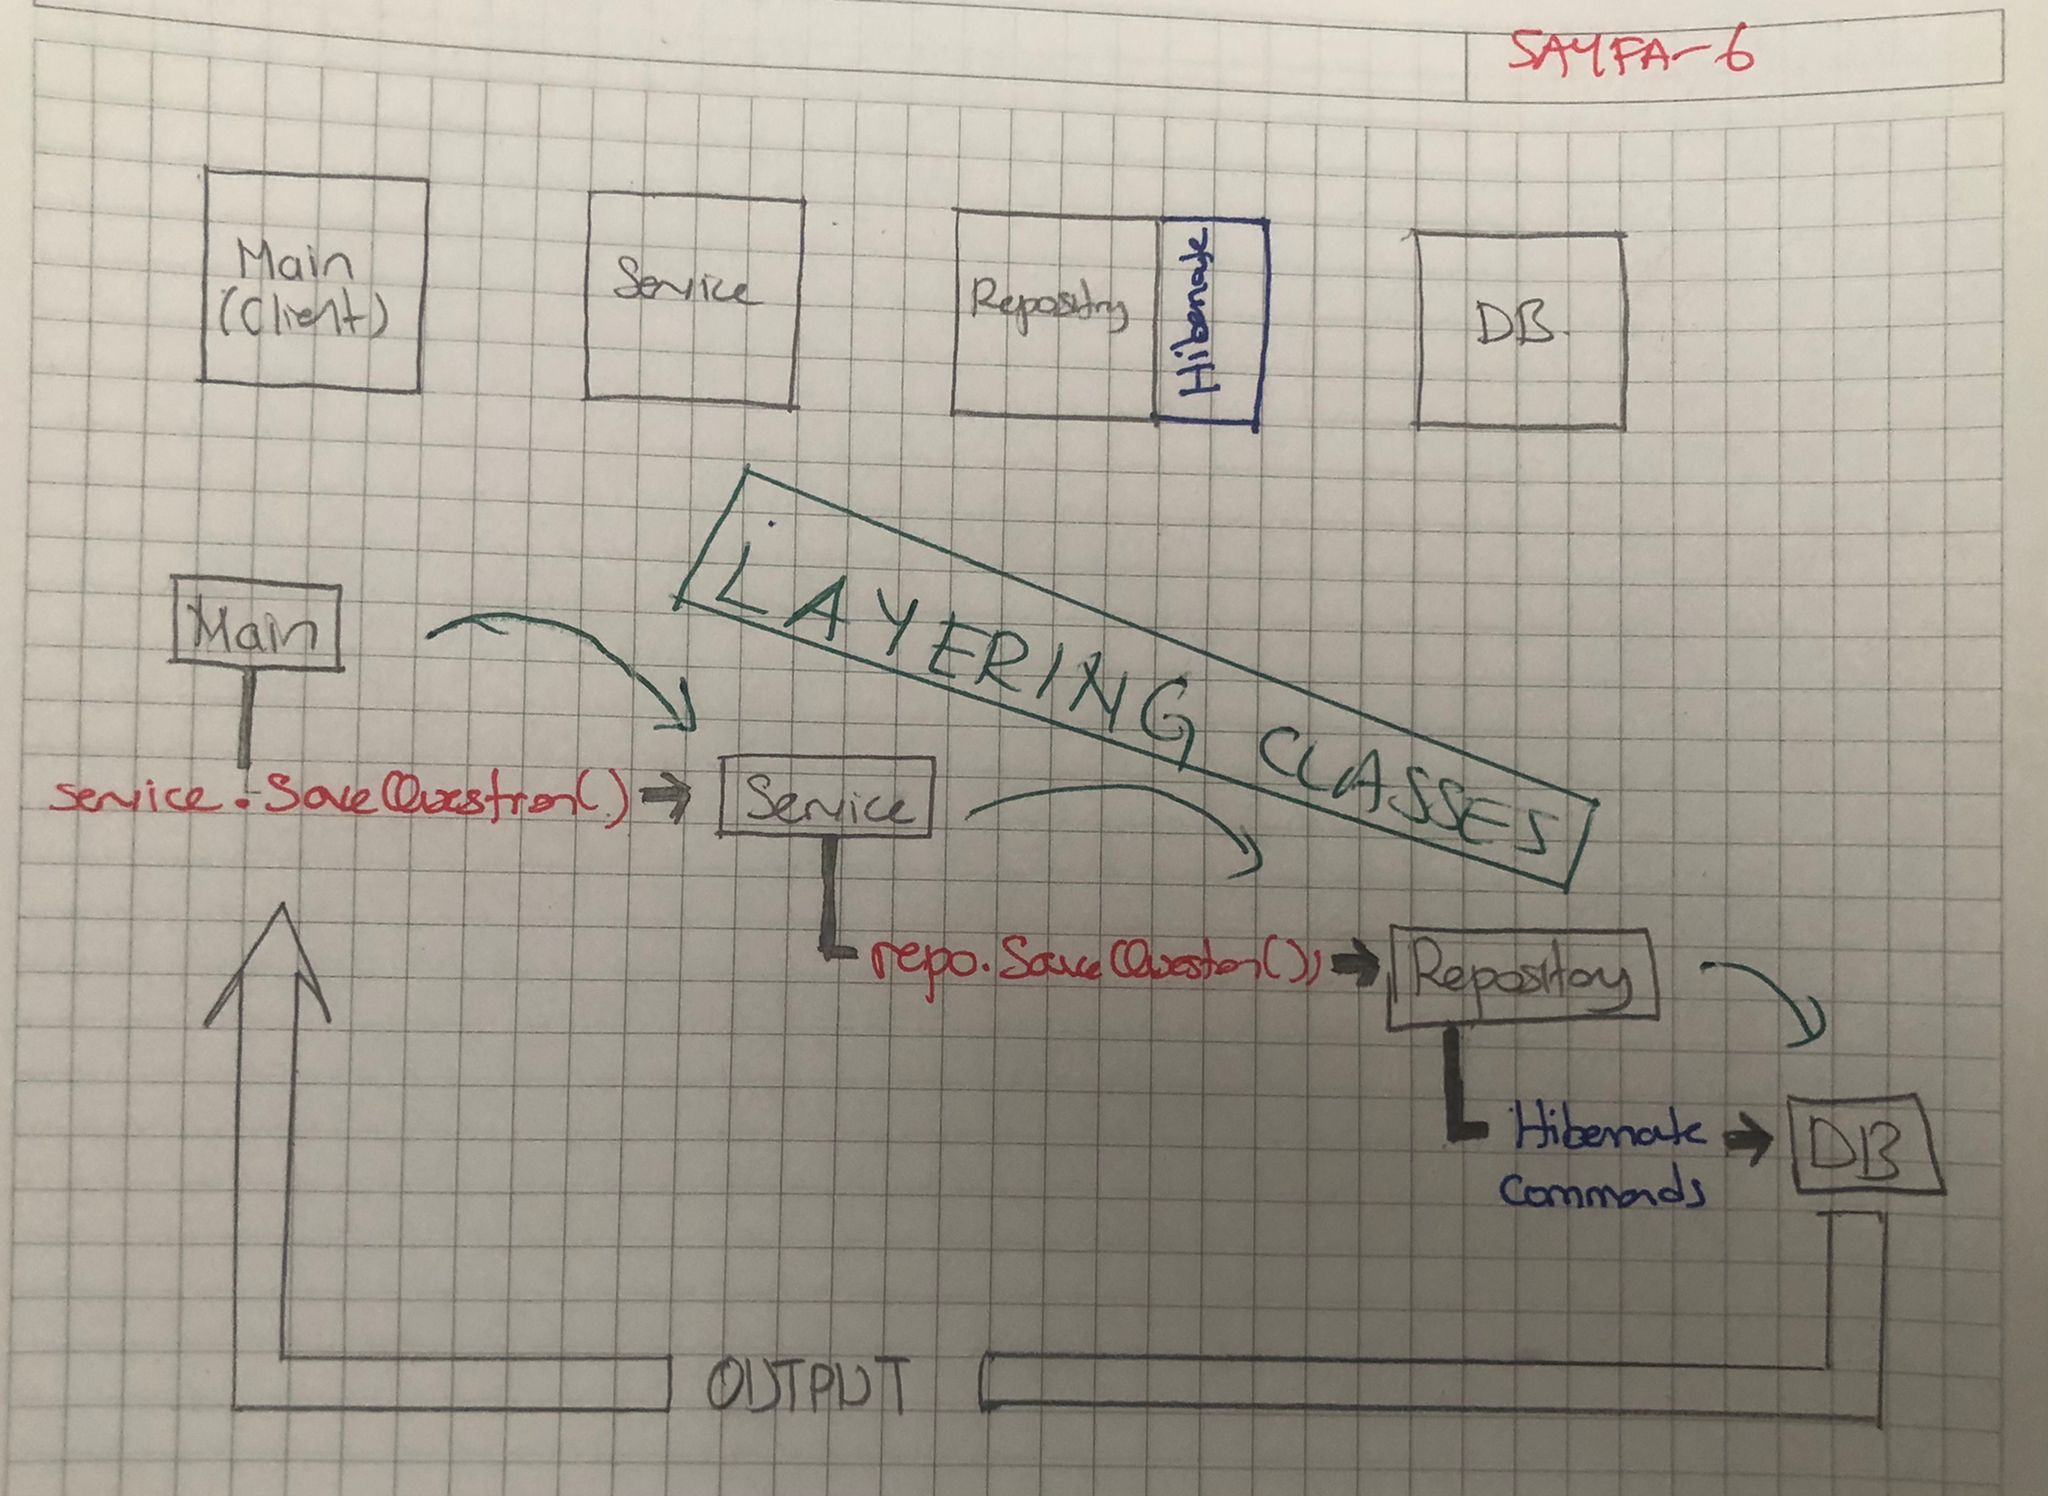 SAYFA-6
Main
(Client)
Service
Repository
Hibernate
DB
LAYERING CLASSES
Main
service.SaveQuestion() → Service
repo.SaveQuestion()) → Repository
Hibernate → DB
Commands
OUTPUT